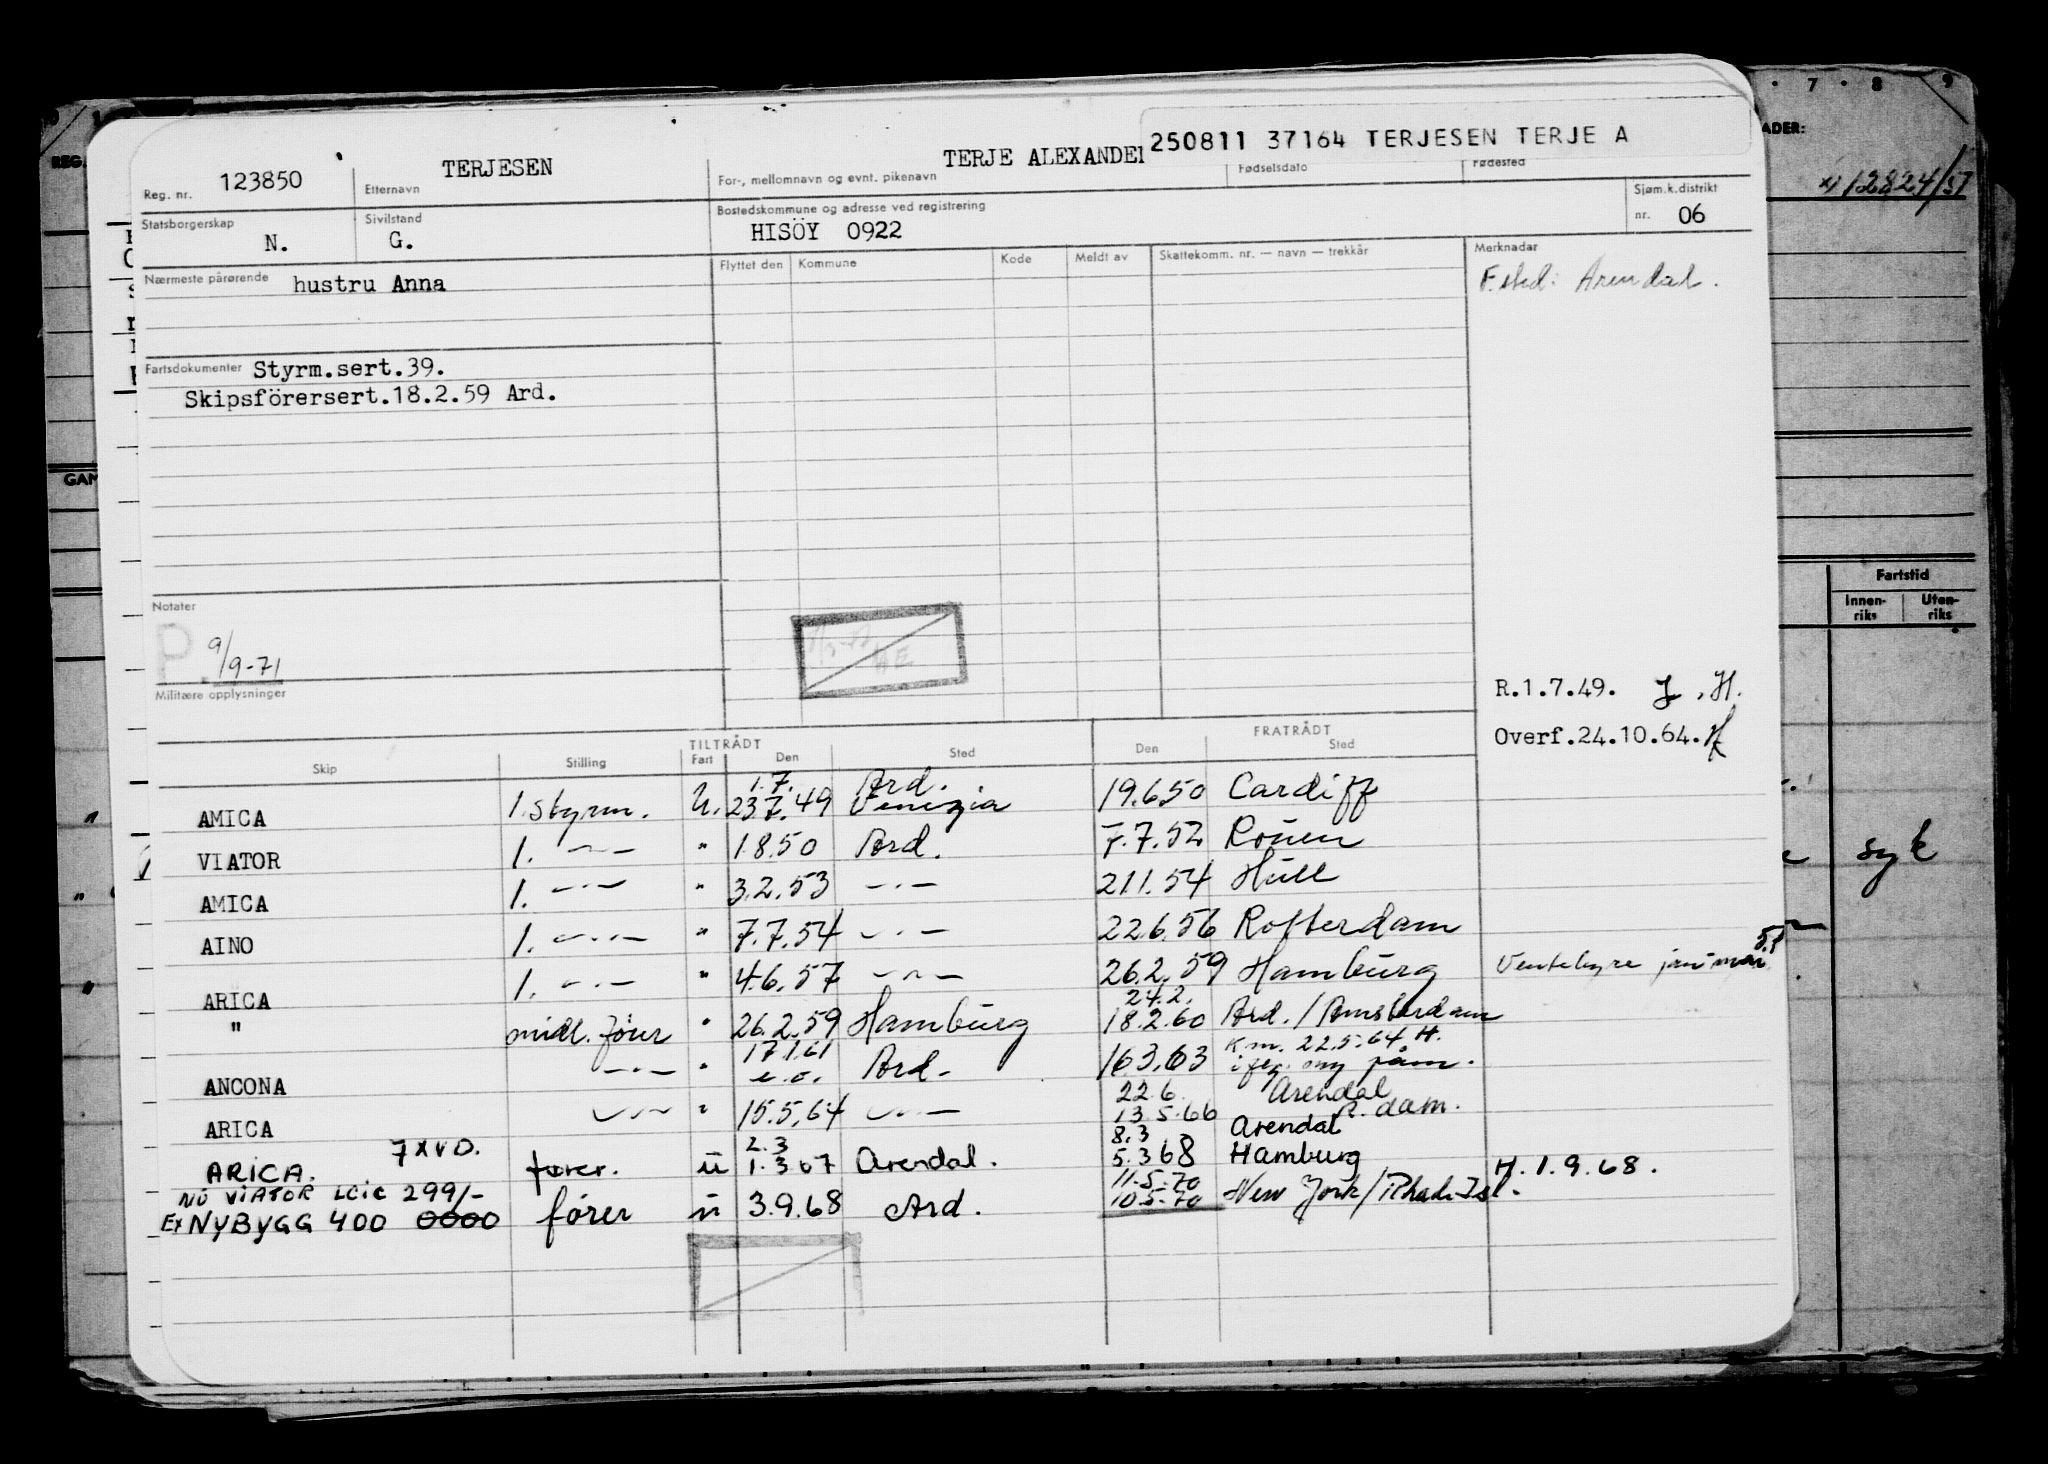 250811 37164 TERJESEN TERJE A
Reg. nr. 123850
Etternavn TERJESEN
For-, mellomnavn og evnt. pikenavn TERJE ALEXANDER
Fødselsdato
Fødested
Statsborgerskap N.
Sivilstand G.
Bostedskommune og adresse ved registrering
HISÖY 0922
Sjøm.k.distrikt nr. 06
Nærmeste pårørende hustru Anna
Flyttet den Kommune Kode Meldt av Skattekomm. nr. — navn — trekkår
Merknadar
F.sted: Arendal.
Fartsdokumenter Styrm.sert.39.
Skipsförersert.18.2.59 Ard.
Notater
P. 9/9-71
Militære opplysninger
R.1.7.49. H.
Overf.24.10.64.
TILTRÅDT FRATRÅDT
Skip Stilling Fart Den Sted Den Sted
1.7. Ard.
AMICA 1. styrm. U. 23.7.49 Venezia 19.6.50 Cardiff
VIATOR 1. —"— " 1.8.50 Ard. 7.7.52 Rouen
AMICA 1. —"— " 3.2.53 —"— 2.11.54 Hull
AINO 1. —"— " 7.7.54 —"— 22.6.56 Rotterdam
ARICA 1. —"— " 4.6.57 —"— 26.2.59 Hamburg Ventehyre
24.2.
" midl. förer " 26.2.59 Hamburg 18.2.60 Ard./Amsterdam
17.1.61 K.m. 22.5.64 H.
ANCONA —"— " e.o. Ard. 16.3.63
22.6. Arendal
ARICA —"— " 15.5.64 —"— 13.5.66 R.dam.
7XVD. 2.3 8.3 Arendal
ARICA. fører. ü 1.3.67 Arendal. 5.3.68 Hamburg H.1.9.68.
NÚ VIATOR LCIC 299/- 11.5.70
Ex NYBYGG 400 0000 fører ü 3.9.68 Ard. 10.5.70 New York/Rhode Isl.
REG.
GAM
7 · 8 9
ADER:
x) 12824/57
Fartstid
Innen-riks Uten-riks
syk